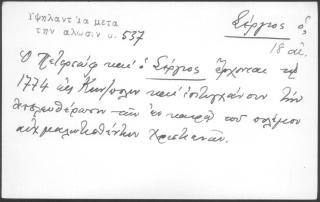 Υψηλαντ ία μετα
την αλωσιν σ. 537
Σέργιος ὁ,
18 αἰ.
Ὁ Πέτρος καὶ ὁ Σέργιος ἔρχονται τῷ
1774 εἰς Κων/πολιν καὶ ἐπιτυγχάνουν τὴν
ἀπελευθέρωσιν τῶν ἐν καιρῷ τοῦ πολέμου
αἰχμαλωτισθέντων Χριστιανῶν.